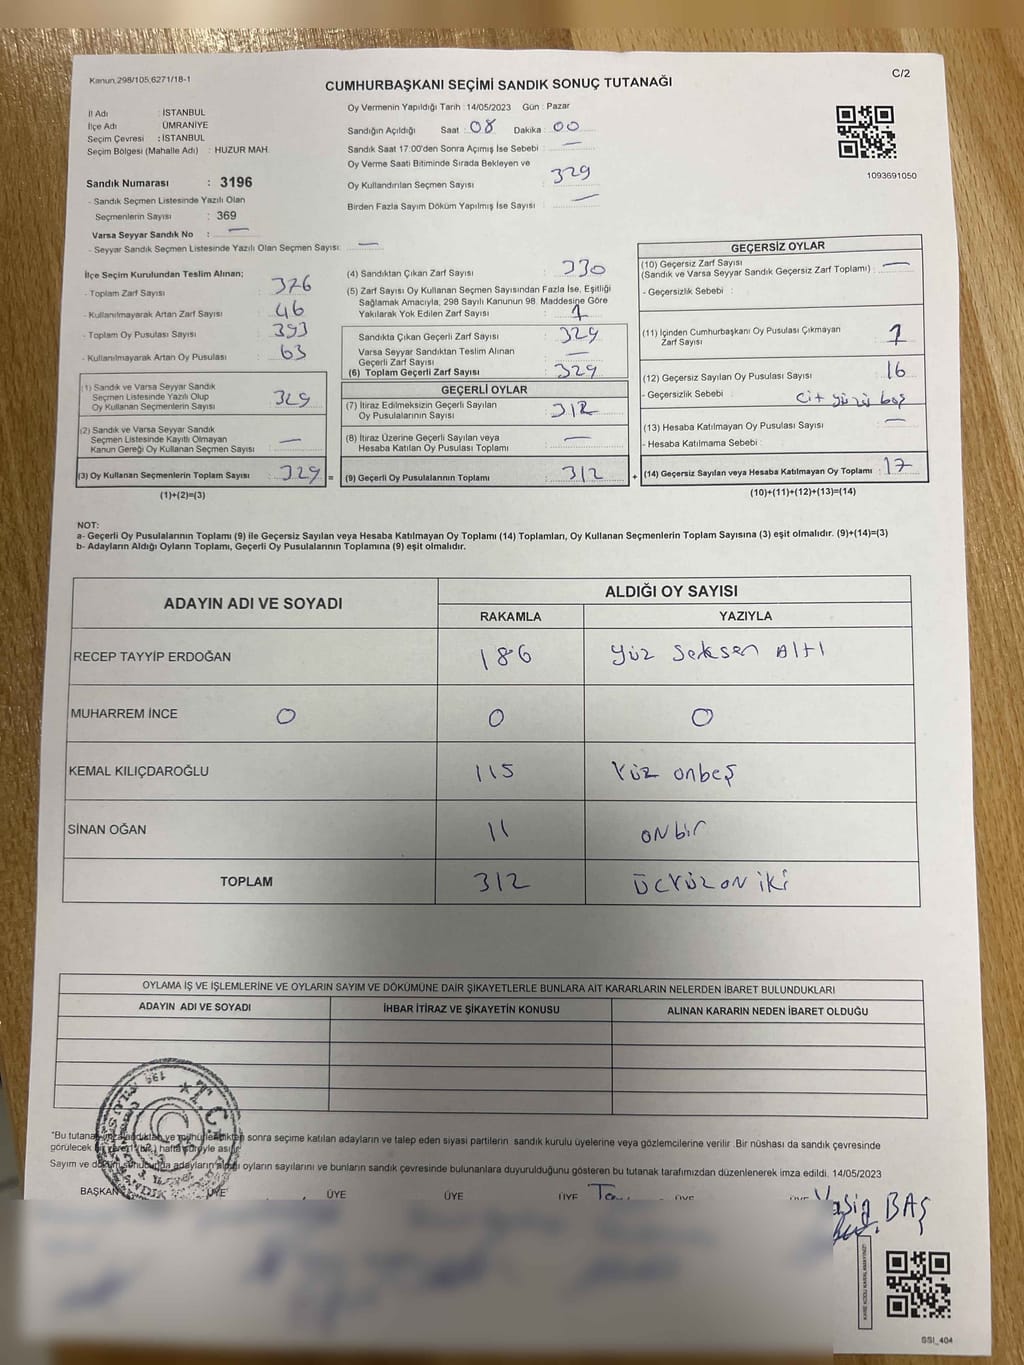 Kanun,298/105,6271/18-1
C/2
CUMHURBAŞKANI SEÇİMİ SANDIK SONUÇ TUTANAĞI
İl Adı : İSTANBUL
İlçe Adı : ÜMRANİYE
Seçim Çevresi : İSTANBUL
Seçim Bölgesi (Mahalle Adı) : HUZUR MAH.
Sandık Numarası : 3196
- Sandık Seçmen Listesinde Yazılı Olan
Seçmenlerin Sayısı : 369
Varsa Seyyar Sandık No : —
- Seyyar Sandık Seçmen Listesinde Yazılı Olan Seçmen Sayısı: —
Oy Vermenin Yapıldığı Tarih : 14/05/2023 Gün : Pazar
Sandığın Açıldığı Saat : 08 Dakika : 00
Sandık Saat 17:00'den Sonra Açımış İse Sebebi : —
Oy Verme Saati Bitiminde Sırada Bekleyen ve
Oy Kullandırılan Seçmen Sayısı : 329
Birden Fazla Sayım Döküm Yapılmış İse Sayısı : —
1093691050
İlçe Seçim Kurulundan Teslim Alınan;
- Toplam Zarf Sayısı : 376
- Kullanılmayarak Artan Zarf Sayısı : 46
- Toplam Oy Pusulası Sayısı : 393
- Kullanılmayarak Artan Oy Pusulası : 63
(1) Sandık ve Varsa Seyyar Sandık
Seçmen Listesinde Yazılı Olup
Oy Kullanan Seçmenlerin Sayısı : 329
(2) Sandık ve Varsa Seyyar Sandık
Seçmen Listesinde Kayıtlı Olmayan
Kanun Gereği Oy Kullanan Seçmen Sayısı : —
(3) Oy Kullanan Seçmenlerin Toplam Sayısı : 329
(1)+(2)=(3)
(4) Sandıktan Çıkan Zarf Sayısı : 330
(5) Zarf Sayısı Oy Kullanan Seçmen Sayısından Fazla İse, Eşitliği
Sağlamak Amacıyla, 298 Sayılı Kanunun 98. Maddesine Göre
Yakılarak Yok Edilen Zarf Sayısı : 1
Sandıkta Çıkan Geçerli Zarf Sayısı : 329
Varsa Seyyar Sandıktan Teslim Alınan
Geçerli Zarf Sayısı : —
(6) Toplam Geçerli Zarf Sayısı : 329
GEÇERLİ OYLAR
(7) İtiraz Edilmeksizin Geçerli Sayılan
Oy Pusulalarının Sayısı : 312
(8) İtiraz Üzerine Geçerli Sayılan veya
Hesaba Katılan Oy Pusulası Toplamı : —
= (9) Geçerli Oy Pusulalarının Toplamı : 312 +
GEÇERSİZ OYLAR
(10) Geçersiz Zarf Sayısı
(Sandık ve Varsa Seyyar Sandık Geçersiz Zarf Toplamı) : —
- Geçersizlik Sebebi :
(11) İçinden Cumhurbaşkanı Oy Pusulası Çıkmayan
Zarf Sayısı : 1
(12) Geçersiz Sayılan Oy Pusulası Sayısı : 16
- Geçersizlik Sebebi : Cit yüzü boş
(13) Hesaba Katılmayan Oy Pusulası Sayısı : —
- Hesaba Katılmama Sebebi :
(14) Geçersiz Sayılan veya Hesaba Katılmayan Oy Toplamı : 17
(10)+(11)+(12)+(13)=(14)
NOT:
a- Geçerli Oy Pusulalarının Toplamı (9) ile Geçersiz Sayılan veya Hesaba Katılmayan Oy Toplamı (14) Toplamları, Oy Kullanan Seçmenlerin Toplam Sayısına (3) eşit olmalıdır. (9)+(14)=(3)
b- Adayların Aldığı Oyların Toplamı, Geçerli Oy Pusulalarının Toplamına (9) eşit olmalıdır.
ADAYIN ADI VE SOYADI
ALDIĞI OY SAYISI
RAKAMLA YAZIYLA
RECEP TAYYİP ERDOĞAN 186 Yüz Seksen Altı
MUHARREM İNCE 0 0 0
KEMAL KILIÇDAROĞLU 115 Yüz onbeş
SİNAN OĞAN 11 onbir
TOPLAM 312 ÜÇYÜZ ON İKİ
OYLAMA İŞ VE İŞLEMLERİNE VE OYLARIN SAYIM VE DÖKÜMÜNE DAİR ŞİKAYETLERLE BUNLARA AİT KARARLARIN NELERDEN İBARET BULUNDUKLARI
ADAYIN ADI VE SOYADI İHBAR İTİRAZ VE ŞİKAYETİN KONUSU ALINAN KARARIN NEDEN İBARET OLDUĞU
T.C.
"Bu tutanak sonra seçime katılan adayların ve talep eden siyasi partilerin sandık kurulu üyelerine veya gözlemcilerine verilir. Bir nüshası da sandık çevresinde
görülecek
Sayım ve oyların sayılarını ve bunların sandık çevresinde bulunanlara duyurulduğunu gösteren bu tutanak tarafımızdan düzenlenerek imza edildi. 14/05/2023
BAŞKAN ÜYE ÜYE ÜYE ÜYE
BAŞ
SSI_404